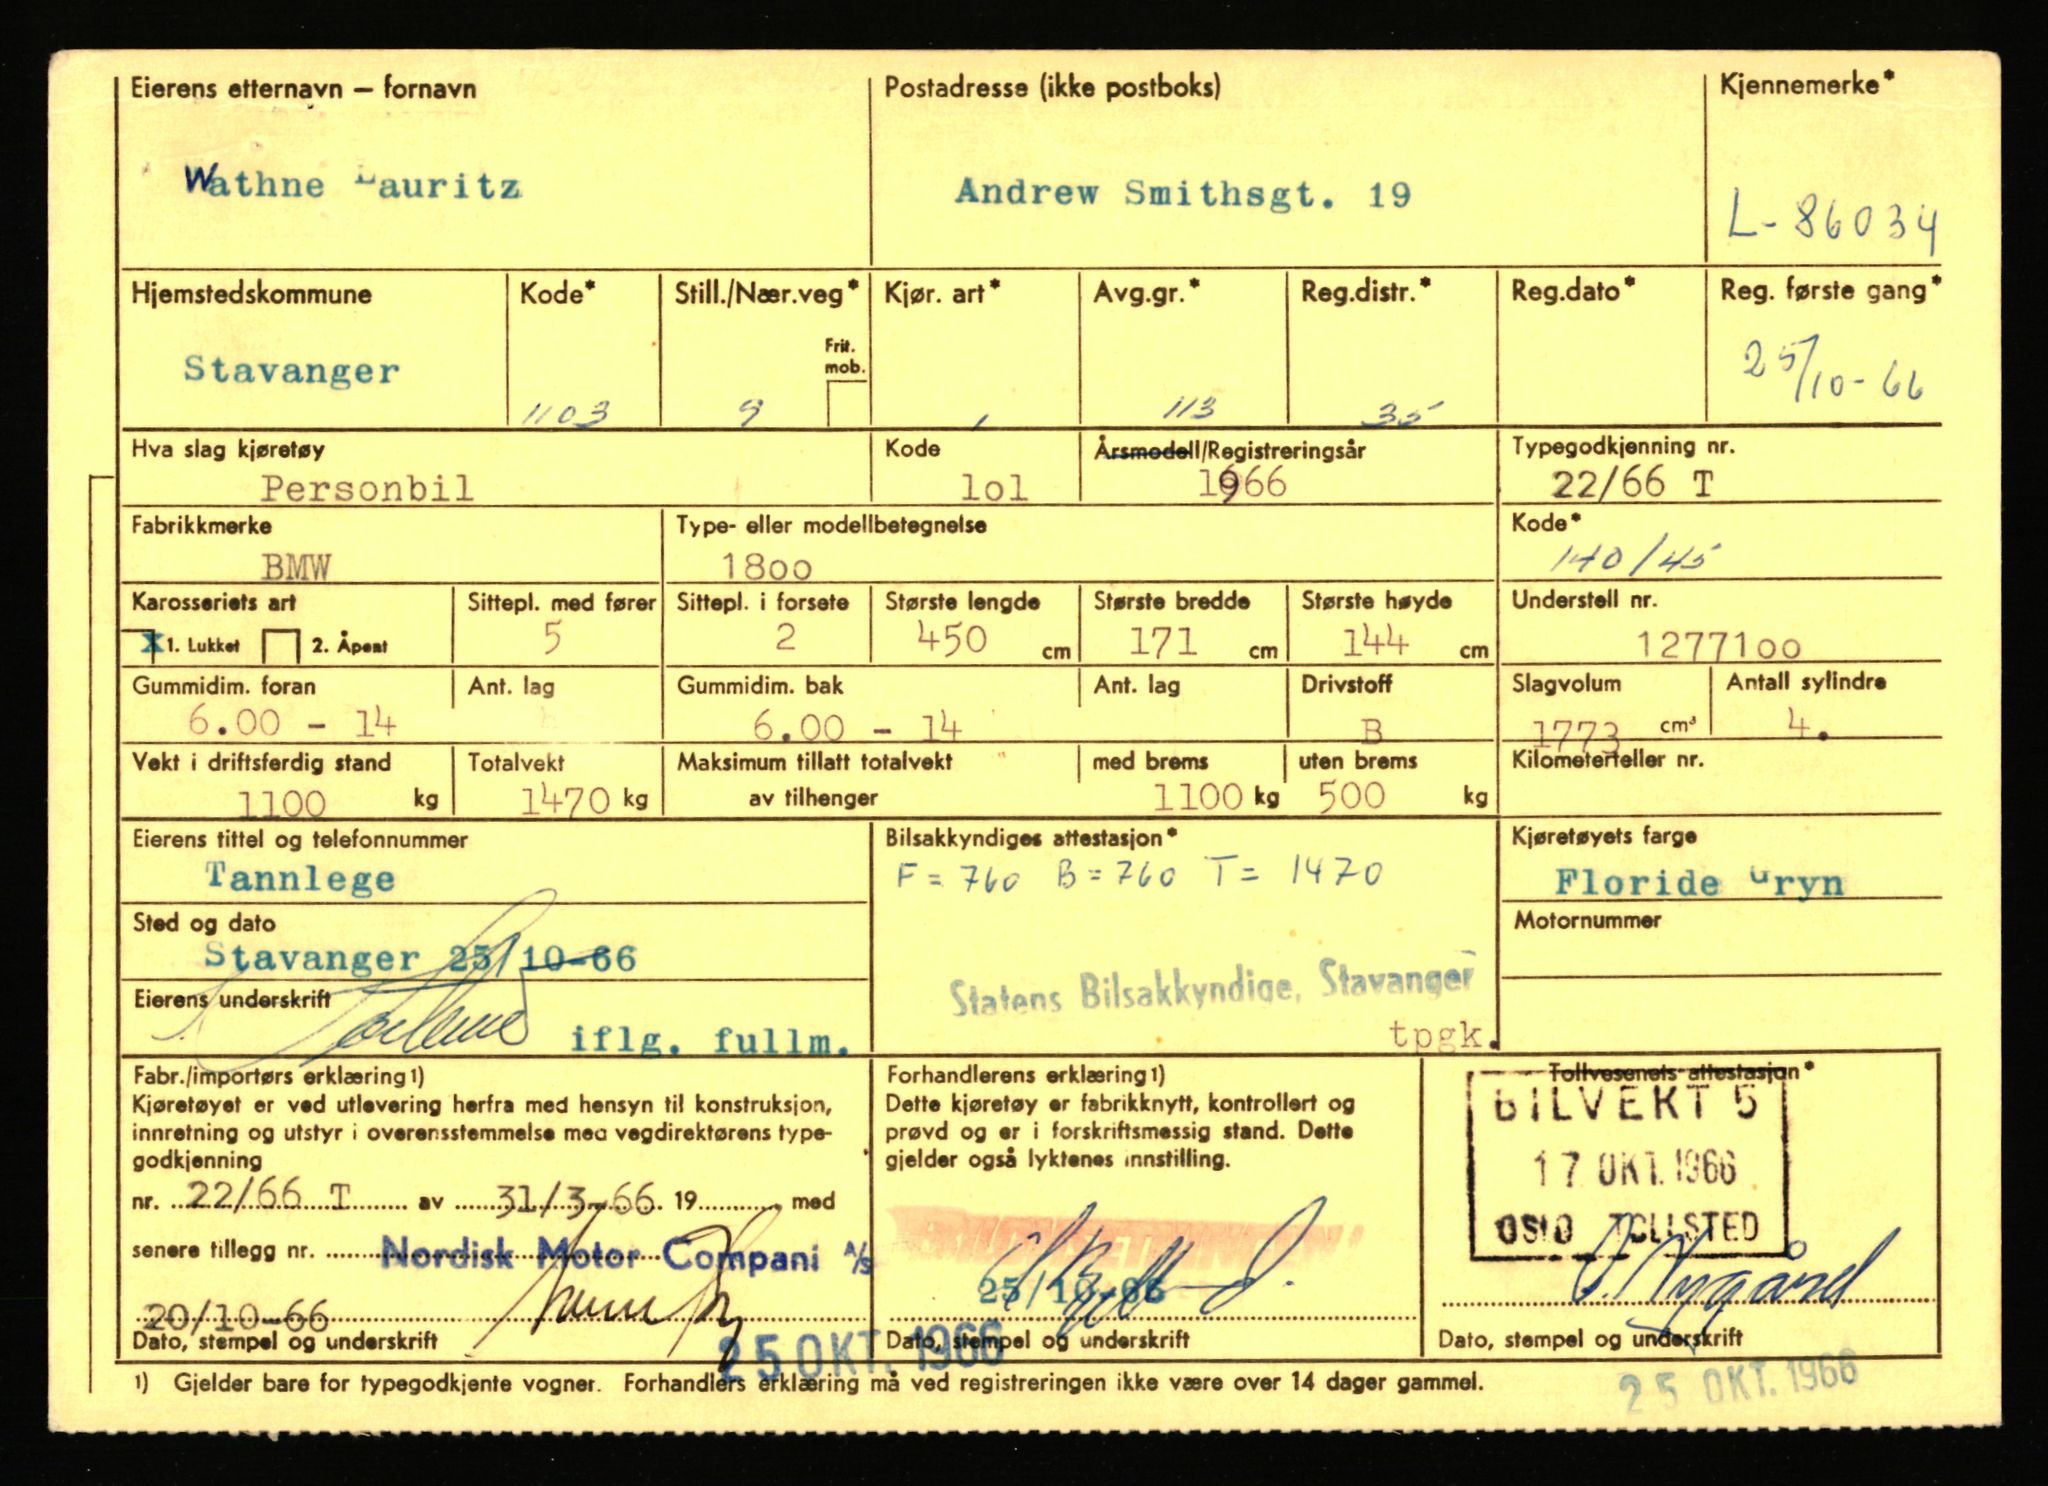 Eierens etternavn – fornavn
Postadresse (ikke postboks)
Kjennemerke*
Wathne Lauritz
Andrew Smithsgt. 19
L-86034
Hjemstedskommune
Kode*
Still./Nær.veg*
Kjør. art*
Avg.gr.*
Reg.distr.*
Reg.dato*
Reg. første gang*
Frit. mob.
Stavanger
1103
9
1
113
35
25/10-66
Hva slag kjøretøy
Kode
Årsmodell/Registreringsår
Typegodkjenning nr.
Personbil
lol
1966
22/66 T
Fabrikkmerke
Type- eller modellbetegnelse
Kode*
BMW
18oo
140/45
Karosseriets art
Sittepl. med fører
Sittepl. i forsete
Største lengde
Største bredde
Største høyde
Understell nr.
X 1. Lukket
2. Åpent
5
2
450 cm
171 cm
144 cm
12771oo
Gummidim. foran
Ant. lag
Gummidim. bak
Ant. lag
Drivstoff
Slagvolum
Antall sylindre
6.00 - 14
6.00 - 14
B
1773 cm³
4.
Vekt i driftsferdig stand
Totalvekt
Maksimum tillatt totalvekt
med brems
uten brems
Kilometerteller nr.
1100 kg
1470 kg
av tilhenger
1100 kg
500 kg
Eierens tittel og telefonnummer
Bilsakkyndiges attestasjon*
Kjøretøyets farge
Tannlege
F = 760 B = 760 T = 1470
Floride Gryn
Sted og dato
Motornummer
Stavanger 25/10-66
Statens Bilsakkyndige, Stavanger
Eierens underskrift
iflg. fullm.
tpgk.
Fabr./importørs erklæring 1)
Kjøretøyet er ved utlevering herfra med hensyn til konstruksjon,
innretning og utstyr i overensstemmelse med vegdirektørens type-
godkjenning
nr. 22/66 T av 31/3-66 19 med
senere tillegg nr.
Nordisk Motor Compani A/S
20/10-66
Dato, stempel og underskrift
Forhandlerens erklæring 1)
Dette kjøretøy er fabrikknytt, kontrollert og
prøvd og er i forskriftsmessig stand. Dette
gjelder også lyktenes innstilling.
25/10-66
Dato, stempel og underskrift
Tollvesenets attestasjon*
BILVEKT 5
17 OKT. 1966
OSLO TOLLSTED
O. Nygård
Dato, stempel og underskrift
25 OKT. 1966
1) Gjelder bare for typegodkjente vogner. Forhandlers erklæring må ved registreringen ikke være over 14 dager gammel.
25 OKT. 1966